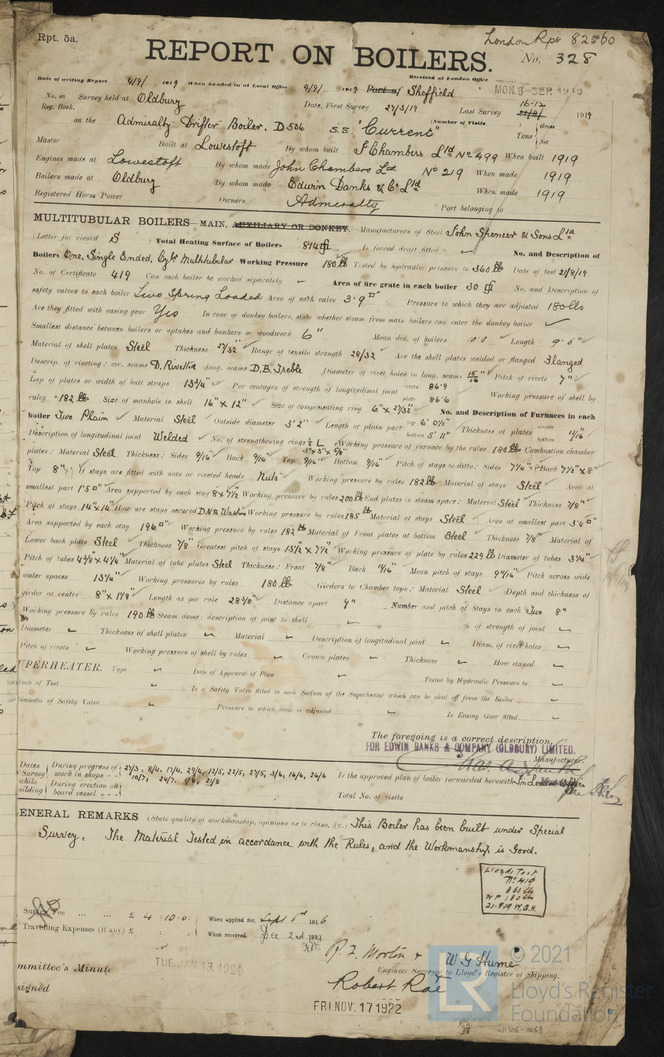 Rpt. 5a.
London Rpt 82560
REPORT ON BOILERS.
No. 328
Received at London Office
Date of writing Report 4/9/1919 When handed in at Local Office 4/9/1919 Port of Sheffield
MON. 8 SEP 1919
No. in Survey held at Oldbury Date, First Survey 27/3/19 Last Survey 16-12 1919
Reg. Book. (Number of Visits
on the Admiralty Drifter Boiler, D506 S.S. "Current" Tons Gross Net
Master Built at Lowestoft By whom built J Chambers Ltd No 499 When built 1919
Engines made at Lowestoft By whom made John Chambers Ltd No 219 When made 1919
Boilers made at Oldbury By whom made Edwin Danks & Co Ltd When made 1919
Registered Horse Power Owners Admiralty Port belonging to
MULTITUBULAR BOILERS — MAIN, AUXILIARY OR DONKEY. Manufacturers of Steel John Spencer & Sons Ltd
(Letter for record S) Total Heating Surface of Boilers 814 Is forced draft fitted No. and Description of
Boilers One, Single Ended, Cylr Multitubular Working Pressure 180 lb Tested by hydraulic pressure to 360 lb Date of test 21/8/19
No. of Certificate 419 Can each boiler be worked separately Area of fire grate in each boiler 30 No. and Description of
safety valves to each boiler Two Spring Loaded Area of each valve 3.9 Pressure to which they are adjusted 180 lbs
Are they fitted with easing gear Yes In case of donkey boilers, state whether steam from main boilers can enter the donkey boiler
Smallest distance between boilers or uptakes and bunkers or woodwork 6" Mean dia. of boilers 10'.0" Length 9'.0"
Material of shell plates Steel Thickness 27/32" Range of tensile strength 28/32 Are the shell plates welded or flanged Flanged
Descrip. of riveting: cir. seams D. Riveted long. seams D.B. Treble Diameter of rivet holes in long. seams 15/16" Pitch of rivets 7"
Lap of plates or width of butt straps 13 3/4" Per centages of strength of longitudinal joint rivets 86.9 plate 86.6 Working pressure of shell by
rules 182 lb Size of manhole in shell 16" x 12" Size of compensating ring 6" x 27/32" No. and Description of Furnaces in each
boiler Two Plain Material Steel Outside diameter 3' 2" Length of plain part top 6' 0 1/2" bottom 5' 11" Thickness of plates crown bottom 11/16"
Description of longitudinal joint Welded No. of strengthening rings Working pressure of furnace by the rules 180 lb Combustion chamber
plates: Material Steel Thickness: Sides 9/16 Back 9/16 Top 9/16 Bottom 9/16 Pitch of stays to ditto: Sides 7 1/4" x 8" Back 7 1/2" x 8"
Top 8" If stays are fitted with nuts or riveted heads Nuts Working pressure by rules 182 lb Material of stays Steel Area at
smallest part 1.50" Area supported by each stay 8 x 7 1/2 Working pressure by rules 200 lb End plates in steam space: Material Steel Thickness 7/8"
Pitch of stays 14" x 14" How are stays secured D.N.& Washer Working pressure by rules 185 lb Material of stays Steel Area at smallest part
Area supported by each stay 196 Working pressure by rules 182 lb Material of Front plates at bottom Steel Thickness 7/8" Material of
Lower back plate Steel Thickness 7/8" Greatest pitch of stays 13 1/2 x 7 1/2" Working pressure of plate by rules 229 lb Diameter of tubes 3 1/4"
Pitch of tubes 4 5/8" x 4 1/4" Material of tube plates Steel Thickness: Front 7/8" Back 11/16" Mean pitch of stays 9 9/16" Pitch across wide
water spaces 13 1/4" Working pressures by rules 180 lb Girders to Chamber tops: Material Steel Depth and thickness of
girder at centre 8" x 1 1/8" Length as per rule 28 5/8" Distance apart 7" Number and pitch of Stays in each Two 8"
Working pressure by rules 190 lb Steam dome: description of joint to shell % of strength of joint
Diameter Thickness of shell plates Material Description of longitudinal joint Diam. of rivet holes
Pitch of rivets Working pressure of shell by rules Crown plates Thickness How stayed
UPERHEATER. Type Date of Approval of Plan Tested by Hydraulic Pressure to
Date of Test Is a Safety Valve fitted to each Section of the Superheater which can be shut off from the Boiler
Diameter of Safety Valve Pressure to which each is adjusted Is Easing Gear fitted
The foregoing is a correct description,
FOR EDWIN DANKS & COMPANY (OLDBURY) LIMITED.
Manufacturer.
Dates of Survey while building
During progress of work in shops - - 27/3, 8/4, 17/4, 29/4, 12/5, 22/5, 27/5, 3/6, 16/6, 26/6
10/7, 24/7, 7/8, 21/8
During erection on board vessel - - -
Is the approved plan of boiler forwarded herewith
Total No. of visits
ENERAL REMARKS (State quality of workmanship, opinions as to class, &c.) This Boiler has been built under Special
Survey. The Material Tested in accordance with the Rules, and the Workmanship is Good.
Lloyds Test
No 419
360 lbs
WP 180 lbs
21.8.19 W.G.H.
Survey Fee ... ... £ 4 : 10 : 0 When applied for, Sept 5th 1916
Travelling Expenses (if any) £ When received, Dec 2nd 1921
P. F. Morton & W G Hume
Engineer Surveyor to Lloyd's Register of Shipping.
Robert Rae
mmittee's Minute
TUE. JAN. 13. 1920
signed
FRI. NOV. 17 1922
© 2021
Lloyd's Register
Foundation
LR